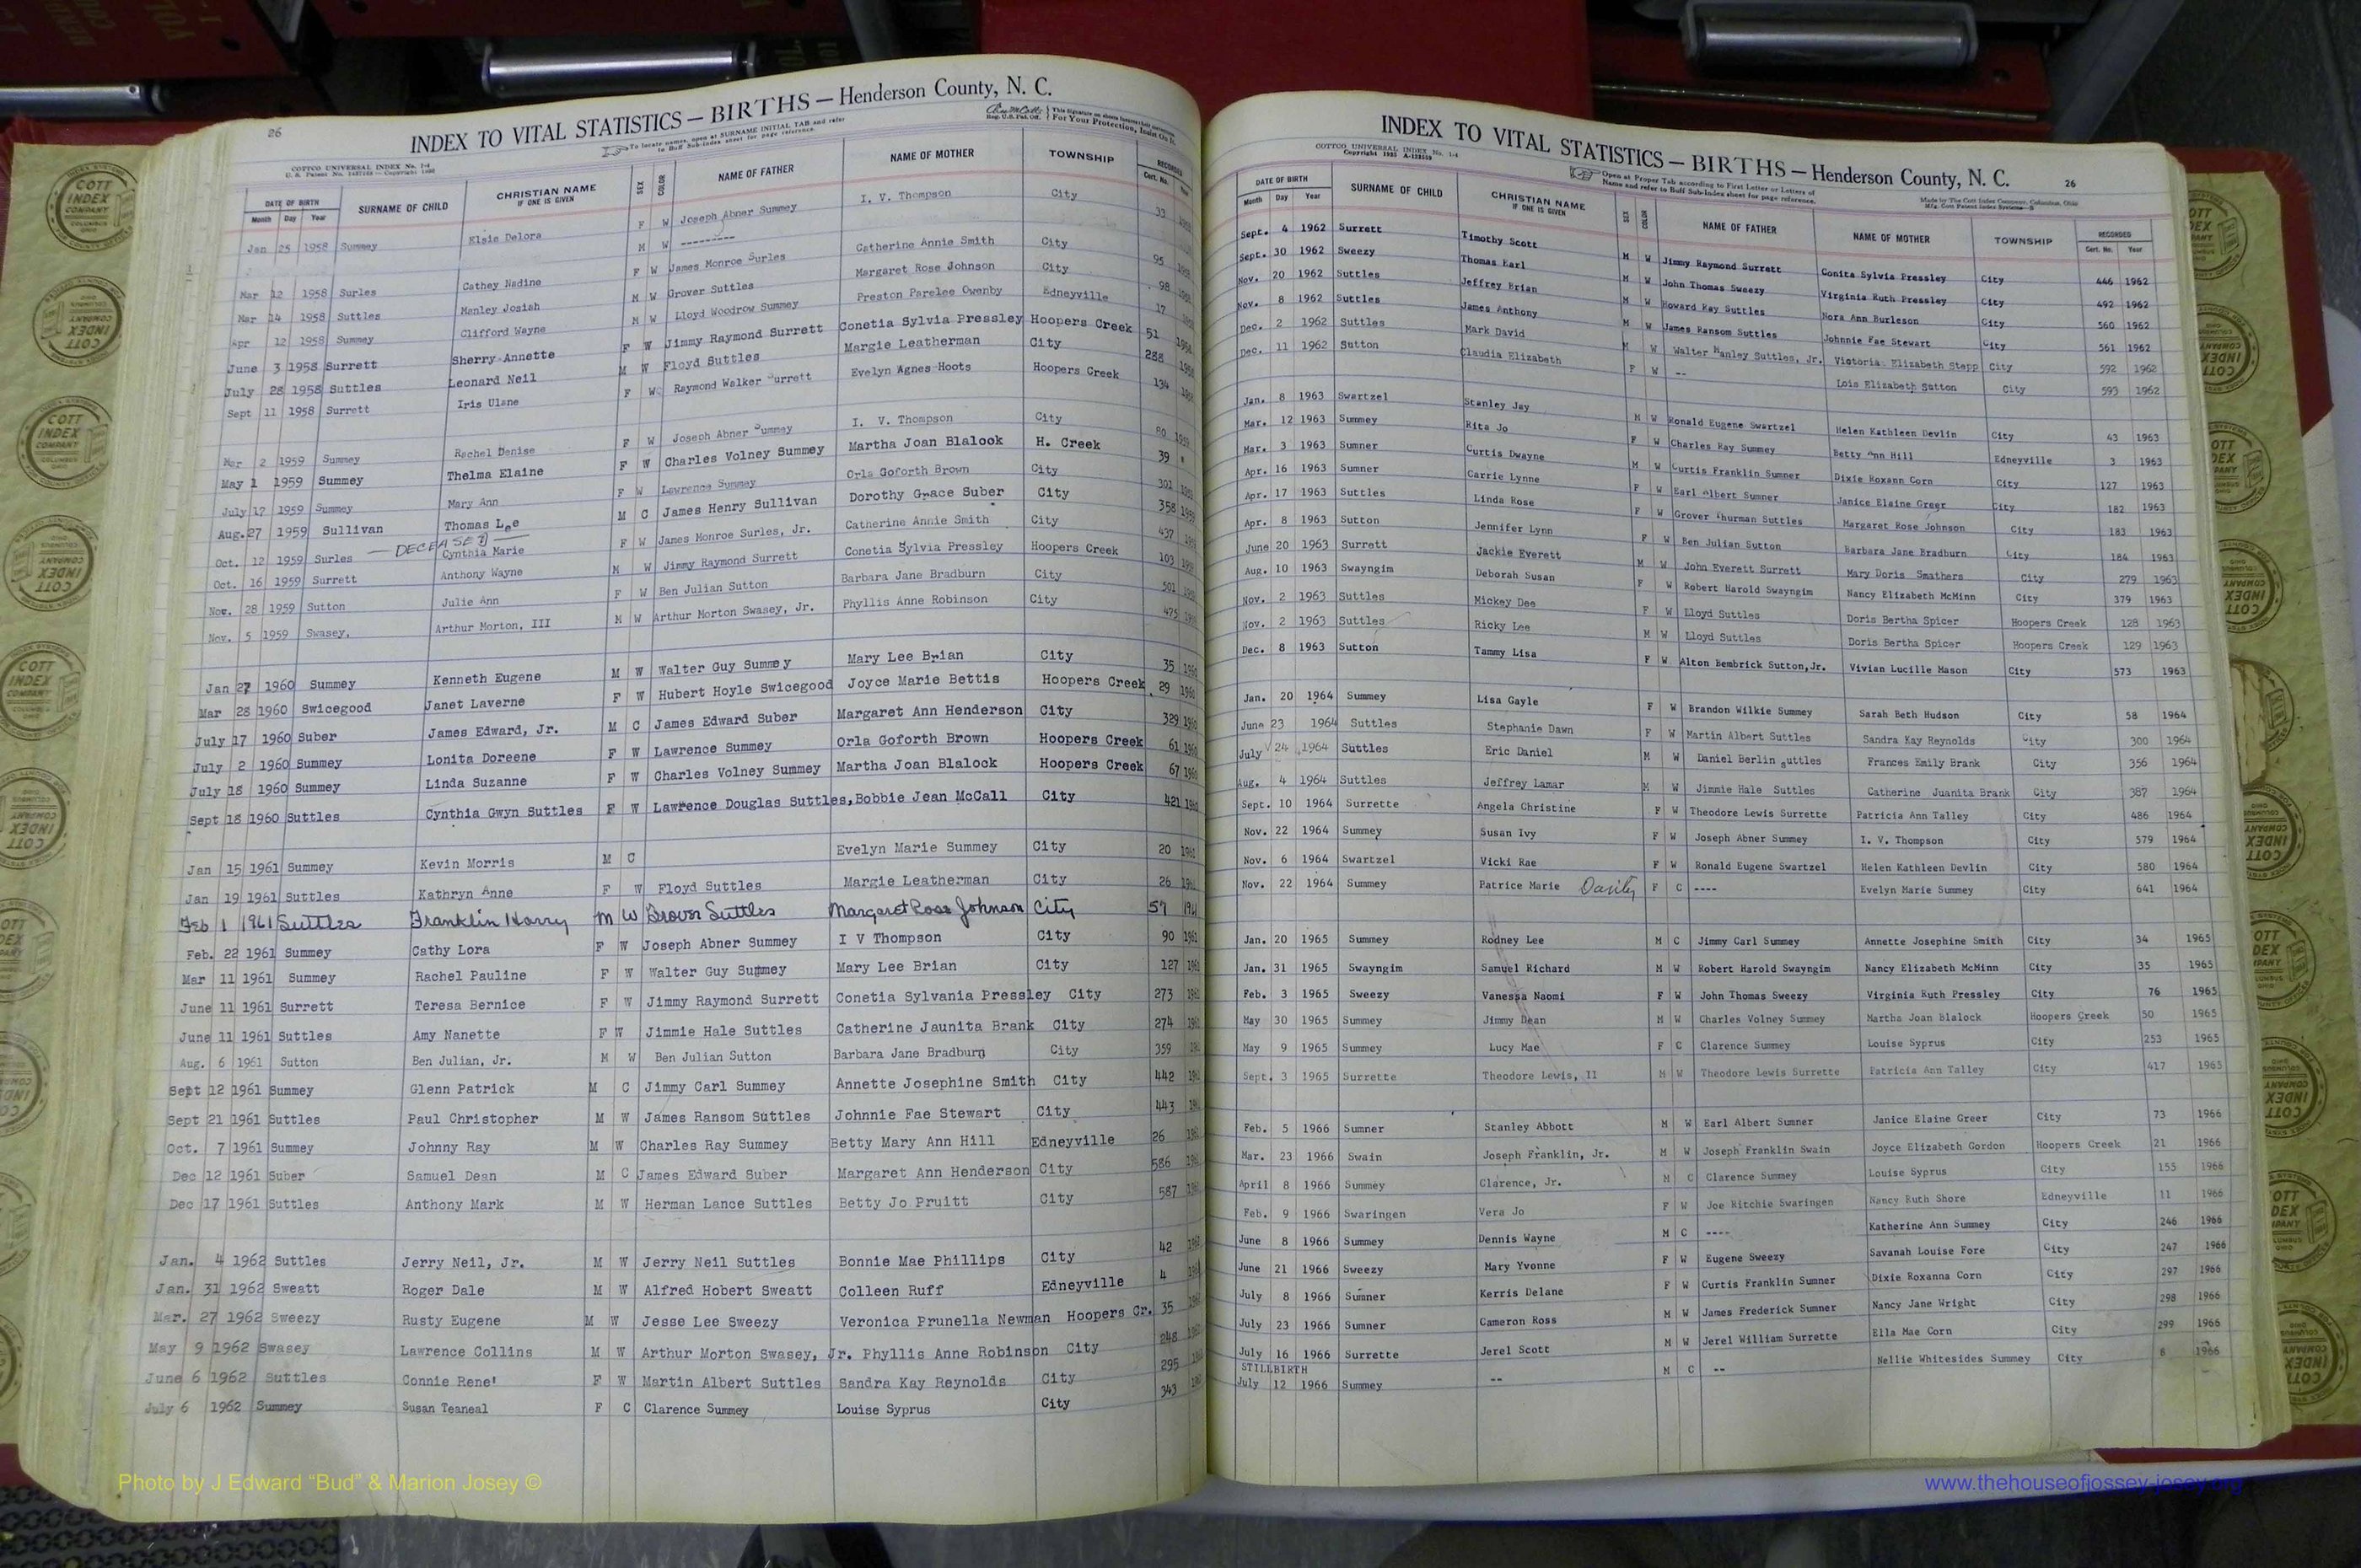 26
INDEX TO VITAL STATISTICS — BIRTHS — Henderson County, N. C.
To locate names, open at SURNAME INITIAL TAB and refer
to Buff Sub-Index sheet for page reference.
COTTCO UNIVERSAL INDEX No. 1-4
DATE OF BIRTH SURNAME OF CHILD CHRISTIAN NAME SEX COLOR NAME OF FATHER NAME OF MOTHER TOWNSHIP RECORDED
Month Day Year IF ONE IS GIVEN Cert. No. Year
Jan 25 1958 Summey Elsie Delora F W Joseph Abner Summey I. V. Thompson City 33
M W ---------
Mar 12 1958 Surles Cathey Nadine F W James Monroe Surles Catherine Annie Smith City 95
Mar 14 1958 Suttles Manley Josiah M W Grover Suttles Margaret Rose Johnson City 98
Apr 12 1958 Summey Clifford Wayne M W Lloyd Woodrow Summey Preston Parelee Owenby Edneyville 17
June 3 1958 Surrett Sherry Annette F W Jimmy Raymond Surrett Conetia Sylvia Pressley Hoopers Creek 51 1958
July 28 1958 Suttles Leonard Neil M W Floyd Suttles Margie Leatherman City 288 1958
Sept 11 1958 Surrett Iris Ulane F W Raymond Walker Surrett Evelyn Agnes Hoots Hoopers Creek 134 1958
Mar 2 1959 Summey Rachel Denise F W Joseph Abner Summey I. V. Thompson City 80 1959
May 1 1959 Summey Thelma Elaine F W Charles Volney Summey Martha Joan Blalock H. Creek 39 "
July 17 1959 Summey Mary Ann F W Lawrence Summey Orla Goforth Brown City 301
Aug. 27 1959 Sullivan Thomas Lee M C James Henry Sullivan Dorothy Grace Suber City 358 1959
— DECEASED —
Oct. 12 1959 Surles Cynthia Marie F W James Monroe Surles, Jr. Catherine Annie Smith City 437
Oct. 16 1959 Surrett Anthony Wayne M W Jimmy Raymond Surrett Conetia Sylvia Pressley Hoopers Creek 103
Nov. 28 1959 Sutton Julie Ann F W Ben Julian Sutton Barbara Jane Bradburn City 501
Nov. 5 1959 Swasey, Arthur Morton, III M W Arthur Morton Swasey, Jr. Phyllis Anne Robinson City 475
Jan 27 1960 Summey Kenneth Eugene M W Walter Guy Summey Mary Lee Brian City 35 1960
Mar 28 1960 Swicegood Janet Laverne F W Hubert Hoyle Swicegood Joyce Marie Bettis Hoopers Creek 29 1960
July 17 1960 Suber James Edward, Jr. M C James Edward Suber Margaret Ann Henderson City 329 1960
July 2 1960 Summey Lonita Doreene F W Lawrence Summey Orla Goforth Brown Hoopers Creek 61 1960
July 18 1960 Summey Linda Suzanne F W Charles Volney Summey Martha Joan Blalock Hoopers Creek 67 1960
Sept 18 1960 Suttles Cynthia Gwyn Suttles F W Lawrence Douglas Suttles, Bobbie Jean McCall City 421 1960
Jan 15 1961 Summey Kevin Morris M C Evelyn Marie Summey City 20 1961
Jan 19 1961 Suttles Kathryn Anne F W Floyd Suttles Margie Leatherman City 26
Feb 1 1961 Suttles Franklin Harry M W Grover Suttles Margaret Rose Johnson City 57 1961
Feb. 22 1961 Summey Cathy Lora F W Joseph Abner Summey I V Thompson City 90 1961
Mar 11 1961 Summey Rachel Pauline F W Walter Guy Summey Mary Lee Brian City 127 1961
June 11 1961 Surrett Teresa Bernice F W Jimmy Raymond Surrett Conetia Sylvania Pressley City 273
June 11 1961 Suttles Amy Nanette F W Jimmie Hale Suttles Catherine Jaunita Brank City 274
Aug. 6 1961 Sutton Ben Julian, Jr. M W Ben Julian Sutton Barbara Jane Bradburn City 359
Sept 12 1961 Summey Glenn Patrick M C Jimmy Carl Summey Annette Josephine Smith City 442
Sept 21 1961 Suttles Paul Christopher M W James Ransom Suttles Johnnie Fae Stewart City 443
Oct. 7 1961 Summey Johnny Ray M W Charles Ray Summey Betty Mary Ann Hill Edneyville 26
Dec 12 1961 Suber Samuel Dean M C James Edward Suber Margaret Ann Henderson City 586
Dec 17 1961 Suttles Anthony Mark M W Herman Lance Suttles Betty Jo Pruitt City 587
Jan. 4 1962 Suttles Jerry Neil, Jr. M W Jerry Neil Suttles Bonnie Mae Phillips City 42
Jan. 31 1962 Sweatt Roger Dale M W Alfred Hobert Sweatt Colleen Ruff Edneyville 4
Mar. 27 1962 Sweezy Rusty Eugene M W Jesse Lee Sweezy Veronica Prunella Newman Hoopers Cr. 35
May 9 1962 Swasey Lawrence Collins M W Arthur Morton Swasey, Jr. Phyllis Anne Robinson City 248
June 6 1962 Suttles Connie Rene' F W Martin Albert Suttles Sandra Kay Reynolds City 295
July 6 1962 Summey Susan Teaneal F C Clarence Summey Louise Syprus City 343
INDEX TO VITAL STATISTICS — BIRTHS — Henderson County, N. C.
26
COTTCO UNIVERSAL INDEX No. 1-4
Open at Proper Tab according to First Letter or Letters of
Name and refer to Buff Sub-Index sheet for page reference.
Made by The Cott Index Company, Columbus, Ohio
DATE OF BIRTH SURNAME OF CHILD CHRISTIAN NAME SEX COLOR NAME OF FATHER NAME OF MOTHER TOWNSHIP RECORDED
Month Day Year IF ONE IS GIVEN Cert. No. Year
Sept. 4 1962 Surrett Timothy Scott M W Jimmy Raymond Surrett Conita Sylvia Pressley City 446 1962
Sept. 30 1962 Sweezy Thomas Earl M W John Thomas Sweezy Virginia Ruth Pressley City 492 1962
Nov. 20 1962 Suttles Jeffrey Brian M W Howard Ray Suttles Nora Ann Burleson City 560 1962
Nov. 8 1962 Suttles James Anthony M W James Ransom Suttles Johnnie Fae Stewart City 561 1962
Dec. 2 1962 Suttles Mark David M W Walter Manley Suttles, Jr. Victoria Elizabeth Stepp City 592 1962
Dec. 11 1962 Sutton Claudia Elizabeth F W -- Lois Elizabeth Sutton City 593 1962
Jan. 8 1963 Swartzel Stanley Jay M W Ronald Eugene Swartzel Helen Kathleen Devlin City 43 1963
Mar. 12 1963 Summey Rita Jo F W Charles Ray Summey Betty Ann Hill Edneyville 3 1963
Mar. 3 1963 Sumner Curtis Dwayne M W Curtis Franklin Sumner Dixie Roxann Corn City 127 1963
Apr. 16 1963 Sumner Carrie Lynne F W Earl Albert Sumner Janice Elaine Greer City 182 1963
Apr. 17 1963 Suttles Linda Rose F W Grover Thurman Suttles Margaret Rose Johnson City 183 1963
Apr. 8 1963 Sutton Jennifer Lynn F W Ben Julian Sutton Barbara Jane Bradburn City 184 1963
June 20 1963 Surrett Jackie Everett M W John Everett Surrett Mary Doris Smathers City 279 1963
Aug. 10 1963 Swayngim Deborah Susan F W Robert Harold Swayngim Nancy Elizabeth McMinn City 379 1963
Nov. 2 1963 Suttles Mickey Dee F W Lloyd Suttles Doris Bertha Spicer Hoopers Creek 128 1963
Nov. 2 1963 Suttles Ricky Lee M W Lloyd Suttles Doris Bertha Spicer Hoopers Creek 129 1963
Dec. 8 1963 Sutton Tammy Lisa F W Alton Bembrick Sutton,Jr. Vivian Lucille Mason City 573 1963
Jan. 20 1964 Summey Lisa Gayle F W Brandon Wilkie Summey Sarah Beth Hudson City 58 1964
June 23 1964 Suttles Stephanie Dawn F W Martin Albert Suttles Sandra Kay Reynolds City 300 1964
July 24 1964 Suttles Eric Daniel M W Daniel Berlin Suttles Frances Emily Brank City 356 1964
Aug. 4 1964 Suttles Jeffrey Lamar M W Jimmie Hale Suttles Catherine Juanita Brank City 387 1964
Sept. 10 1964 Surrette Angela Christine F W Theodore Lewis Surrette Patricia Ann Talley City 486 1964
Nov. 22 1964 Summey Susan Ivy F W Joseph Abner Summey I. V. Thompson City 579 1964
Nov. 6 1964 Swartzel Vicki Rae F W Ronald Eugene Swartzel Helen Kathleen Devlin City 580 1964
Nov. 22 1964 Summey Patrice Marie F C ---- Evelyn Marie Summey City 641 1964
Jan. 20 1965 Summey Rodney Lee M C Jimmy Carl Summey Annette Josephine Smith City 34 1965
Jan. 31 1965 Swayngim Samuel Richard M W Robert Harold Swayngim Nancy Elizabeth McMinn City 35 1965
Feb. 3 1965 Sweezy Vanessa Naomi F W John Thomas Sweezy Virginia Ruth Pressley City 76 1965
May 30 1965 Summey Jimmy Dean M W Charles Volney Summey Martha Joan Blalock Hoopers Creek 50 1965
May 9 1965 Summey Lucy Mae F C Clarence Summey Louise Syprus City 253 1965
Sept. 3 1965 Surrette Theodore Lewis, II M W Theodore Lewis Surrette Patricia Ann Talley City 417 1965
Feb. 5 1966 Sumner Stanley Abbott M W Earl Albert Sumner Janice Elaine Greer City 73 1966
Mar. 23 1966 Swain Joseph Franklin, Jr. M W Joseph Franklin Swain Joyce Elizabeth Gordon Hoopers Creek 21 1966
April 8 1966 Summey Clarence, Jr. M C Clarence Summey Louise Syprus City 155 1966
Feb. 9 1966 Swaringen Vera Jo F W Joe Ritchie Swaringen Nancy Ruth Shore Edneyville 11 1966
June 8 1966 Summey Dennis Wayne M C ---- Katherine Ann Summey City 246 1966
June 21 1966 Sweezy Mary Yvonne F W Eugene Sweezy Savanah Louise Fore City 247 1966
July 8 1966 Sumner Kerris Delane F W Curtis Franklin Sumner Dixie Roxanna Corn City 297 1966
July 23 1966 Sumner Cameron Ross M W James Frederick Sumner Nancy Jane Wright City 298 1966
July 16 1966 Surrette Jerel Scott M W Jerel William Surrette Ella Mae Corn City 299 1966
STILLBIRTH
July 12 1966 Summey -- M C -- Nellie Whitesides Summey City 8 1966
Photo by J Edward “Bud” & Marion Josey ©
www.thehouseofjossey-josey.org